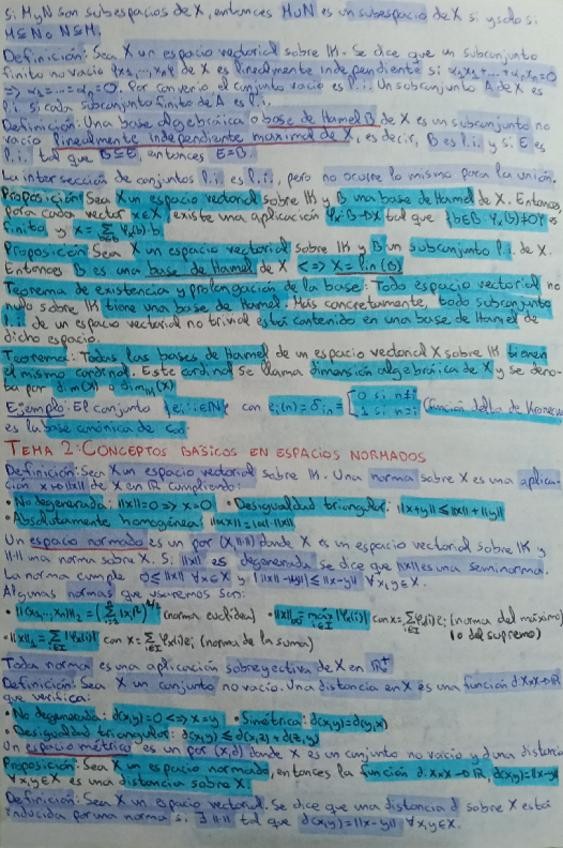 Si M y N son subespacios de X, entonces M∪N es un subespacio de X si y solo si
M⊆N o N⊆M.
Definición: Sea X un espacio vectorial sobre IK. Se dice que un subconjunto
finito no vacío {x₁,...,xₙ} de X es linealmente independiente si α₁x₁+...+αₙxₙ=0
=> α₁=...=αₙ=0. Por convenio el conjunto vacío es l.i. Un subconjunto A de X es
l.i. si cada subconjunto finito de A es l.i.
Definición: Una base algebráica o base de Hamel B de X es un subconjunto no
vacío linealmente independiente maximal de X, es decir, B es l.i. y si E es
l.i. tal que B⊆E, entonces E=B.
La intersección de conjuntos l.i. es l.i., pero no ocurre lo mismo para la unión.
Proposición: Sea X un espacio vectorial sobre IK y B una base de Hamel de X. Entonces,
para cada vector x∈X, existe una aplicación φₓ:B→IK tal que {b∈B: φₓ(b)≠0} es
finito y x = Σ φₓ(b)·b
Proposición: Sea X un espacio vectorial sobre IK y B un subconjunto l.i. de X.
Entonces B es una base de Hamel de X <=> X = lin(B)
Teorema de existencia y prolongación de la base: Todo espacio vectorial no
nulo sobre IK tiene una base de Hamel. Más concretamente, todo subconjunto
l.i. de un espacio vectorial no trivial está contenido en una base de Hamel de
dicho espacio.
Teorema: Todas las bases de Hamel de un espacio vectorial X sobre IK tienen
el mismo cardinal. Este cardinal se llama dimensión algebráica de X y se deno-
ta por dim(X) o dim_IK(X)
Ejemplo: El conjunto {eᵢ:i∈IN} con eᵢ(n)=δᵢₙ= {0 si n≠i, 1 si n=i (función delta de Kronecker)
es la base canónica de c₀₀
TEMA 2: CONCEPTOS BÁSICOS EN ESPACIOS NORMADOS
Definición: Sea X un espacio vectorial sobre IK. Una norma sobre X es una aplica-
ción x→||x|| de X en IR cumpliendo:
• No degenerada: ||x||=0 => x=0 • Desigualdad triangular: ||x+y||≤||x||+||y||
• Absolutamente homogénea: ||αx||=|α|·||x||
Un espacio normado es un par (X,||·||) donde X es un espacio vectorial sobre IK y
||·|| una norma sobre X. Si ||x|| es degenerada se dice que ||x|| es una seminorma.
La norma cumple 0≤||x|| ∀x∈X y |||x||-||y|||≤||x-y|| ∀x,y∈X.
Algunas normas que usaremos son:
• ||(x₁,...,xₙ)||₂=(Σ|xᵢ|²)^1/2 (norma euclídea) • ||x||∞=máx|φₓ(i)| con x=Σφₓ(i)eᵢ (norma del máximo)
• ||x||₁=Σ|φₓ(i)| con x=Σφₓ(i)eᵢ (norma de la suma) (o del supremo)
Toda norma es una aplicación sobreyectiva de X en IR⁺
Definición: Sea X un conjunto no vacío. Una distancia en X es una función d:X×X→IR
que verifica:
• No degenerada: d(x,y)=0 <=> x=y • Simétrica: d(x,y)=d(y,x)
• Desigualdad triangular: d(x,y)≤d(x,z)+d(z,y)
Un espacio métrico es un par (X,d) donde X es un conjunto no vacío y d una distancia
Proposición: Sea X un espacio normado, entonces la función d:X×X→IR, d(x,y)=||x-y||
∀x,y∈X es una distancia sobre X.
Definición: Sea X un espacio vectorial. Se dice que una distancia d sobre X está
inducida por una norma si ∃ ||·|| tal que d(x,y)=||x-y|| ∀x,y∈X.